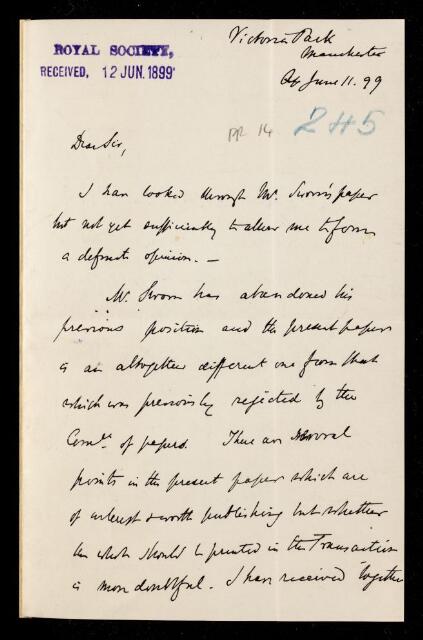 Victoria Park
Manchester
June 11. 99
ROYAL SOCIETY,
RECEIVED, 12 JUN. 1899
RR 14
245
Dear Sir,
I have looked through Mr. Sworn's paper
but not yet sufficiently to allow me to form
a definite opinion. —
Mr. Sworn has abandoned his
previous position and the present paper
is an altogether different one from that
which was previously rejected by the
Comee. of papers. There are several
points in the present paper which are
of interest & worth publishing but whether
the whole should be printed in the Transactions
is more doubtful. I have received together